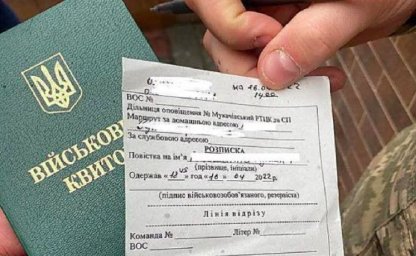 ВІЙСЬКОВ
КВИТО
на 16.04.22
ВОС №
14.00
Дільниця оповіщення № Мукачівський РТЦК та СП
Маршрут за домашньою адресою
За службовою адресою
РОЗПИСКА
Повістка на ім'я
(прізвище, ініціали)
Одержав «13 45 » год «16 » 04 2022 р.
(підпис військовозобов'язаного, резервіста)
Лінія відрізу
Команда № Літер №
ВОС